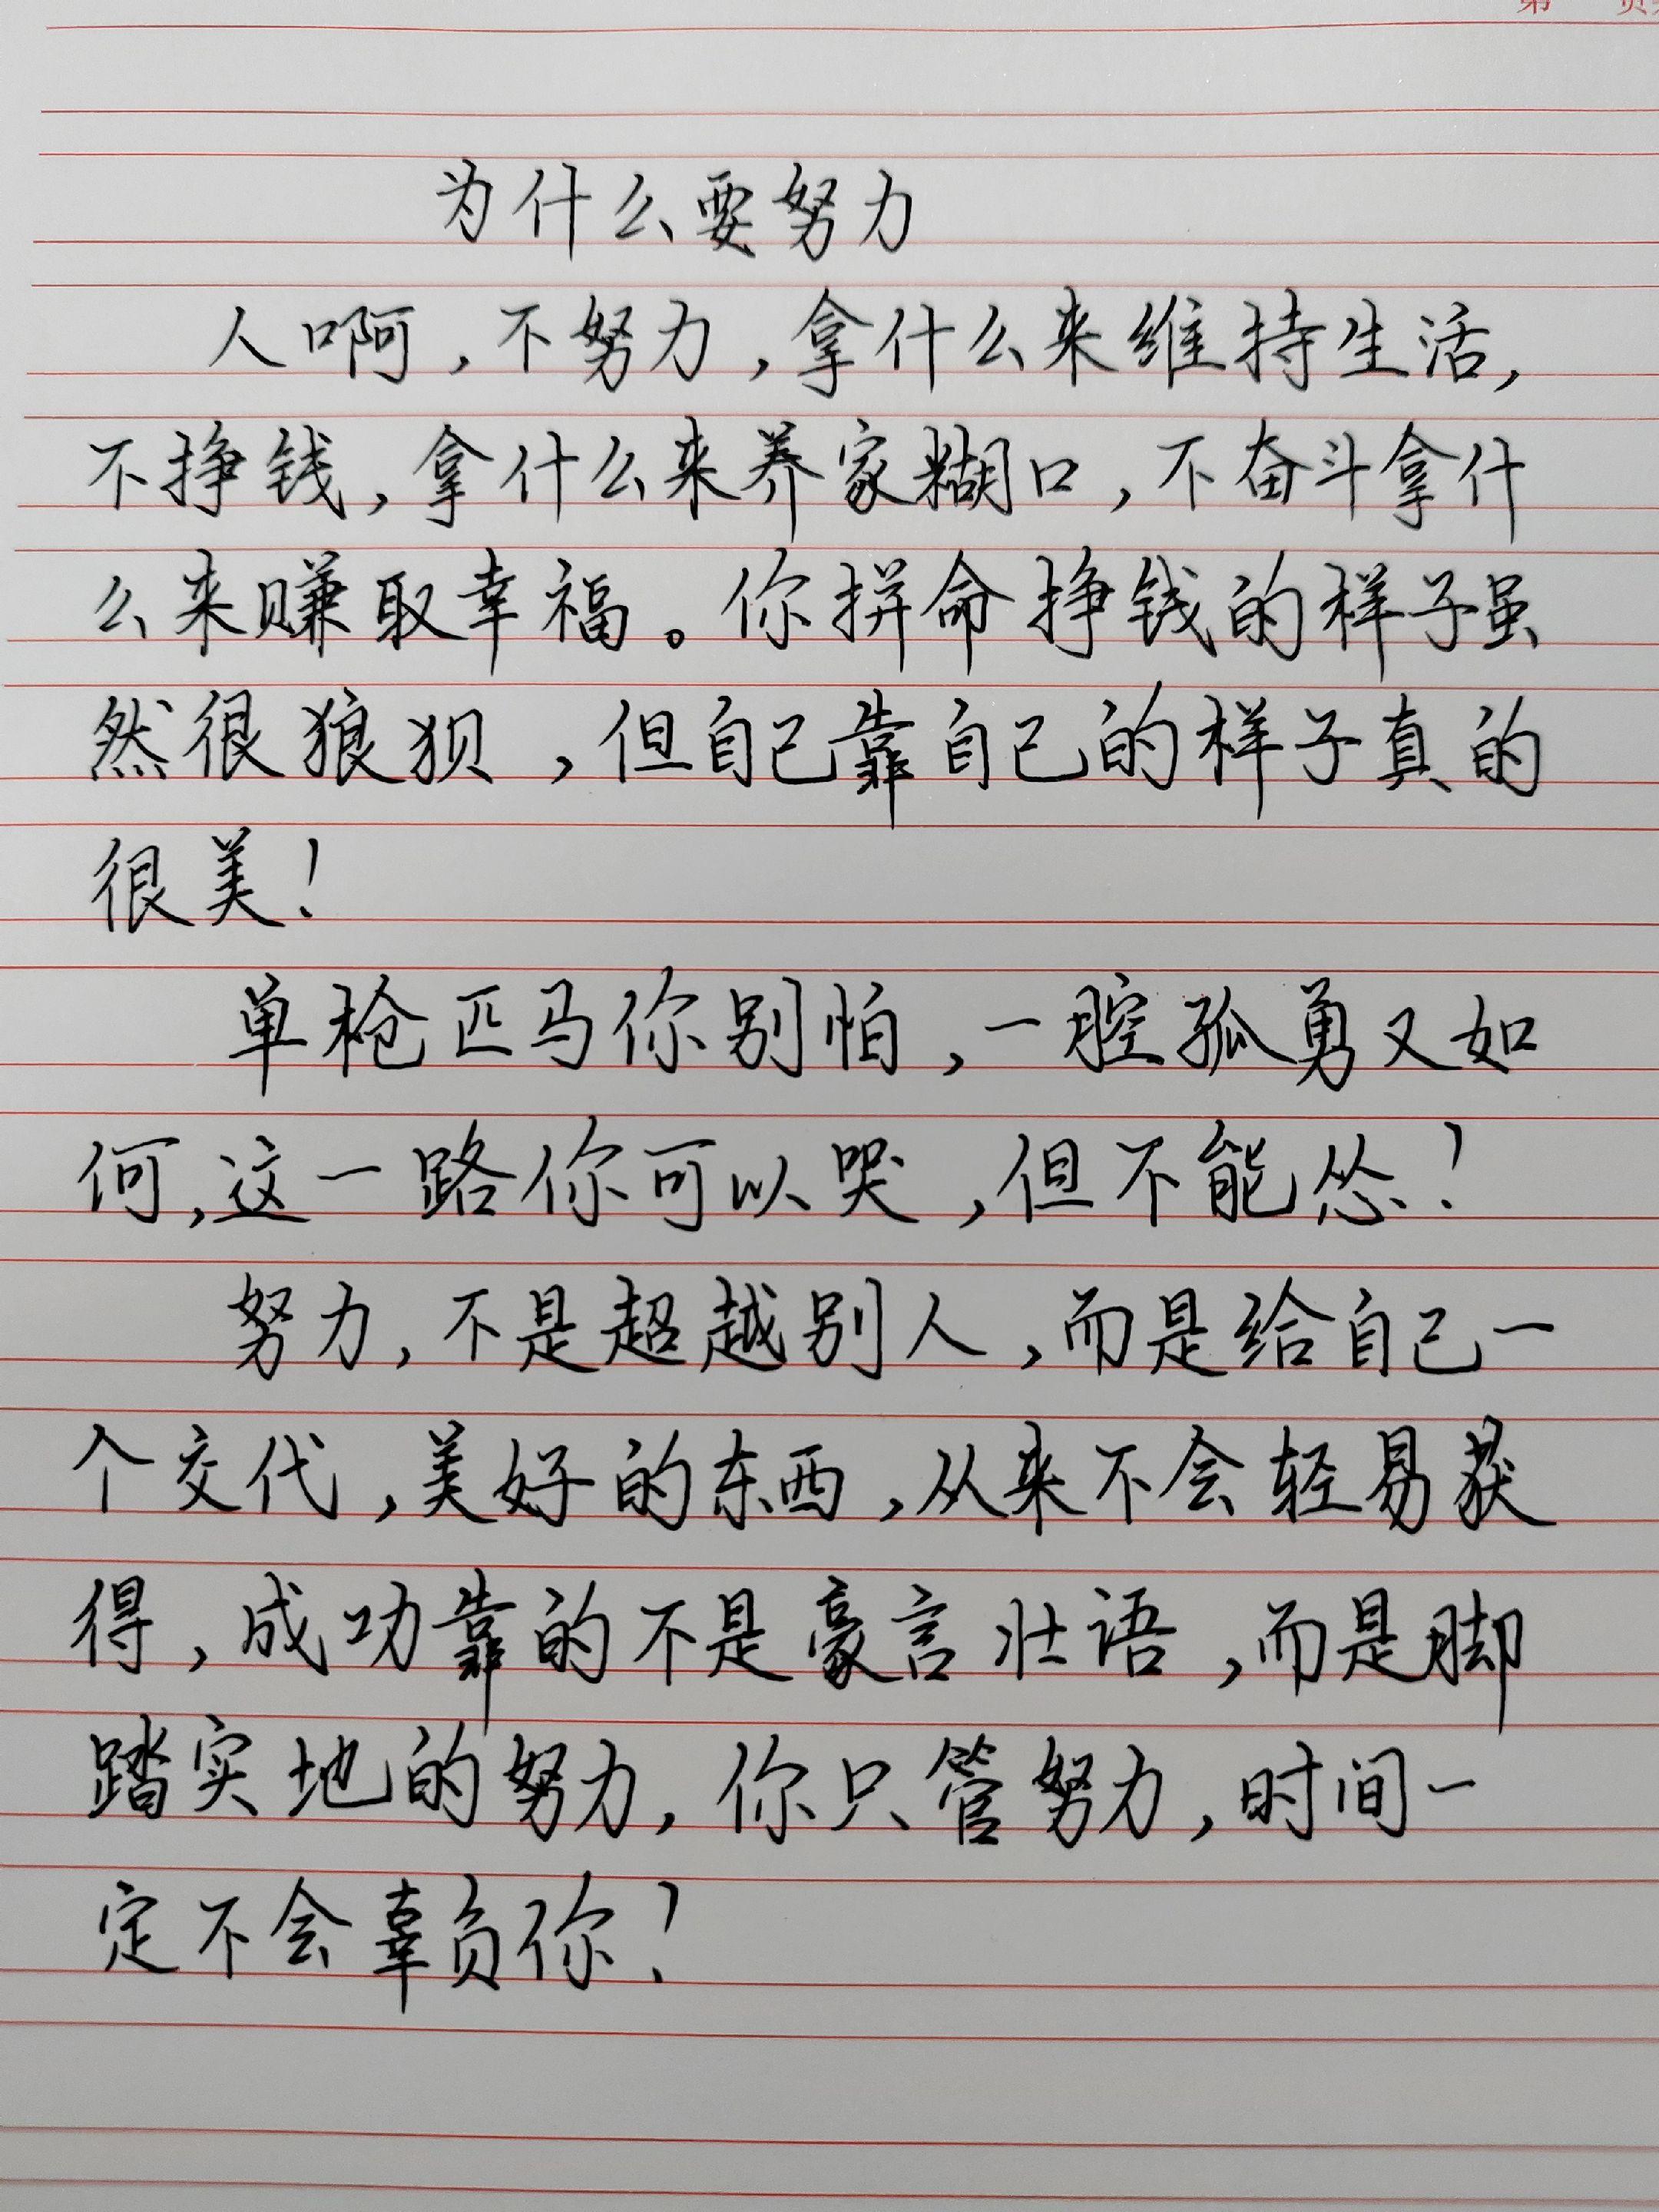 第 页
为什么要努力
人啊，不努力，拿什么来维持生活，
不挣钱，拿什么来养家糊口，不奋斗拿什
么来赚取幸福。你拼命挣钱的样子虽
然很狼狈，但自己靠自己的样子真的
很美！
单枪匹马你别怕，一腔孤勇又如
何，这一路你可以哭，但不能怂！
努力，不是超越别人，而是给自己一
个交代，美好的东西，从来不会轻易获
得，成功靠的不是豪言壮语，而是脚
踏实地的努力，你只管努力，时间一
定不会辜负你！